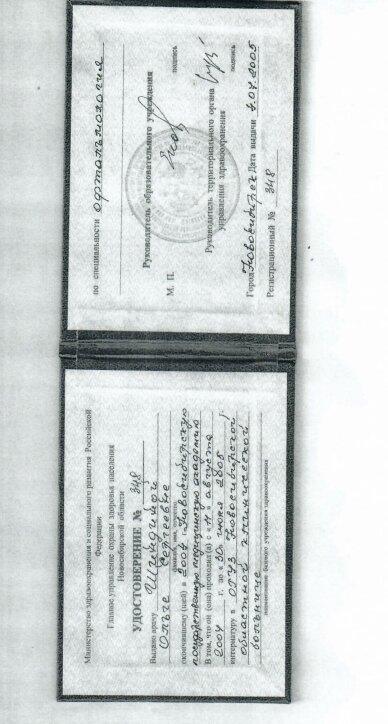 Министерство здравоохранения и социального развития Российской
Федерации
Главное управление охраны здоровья населения
Новосибирской области
УДОСТОВЕРЕНИЕ № 348
Выдано врачу
Ольге Сергеевне
фамилия, имя, отчество
окончившему(шей) в 2004 г. Новосибирскую
государственную медицинскую академию
В том, что он (она) прошел(а) с « » августа
2004 г. по « 30 » июня 2005
интернатуру в ОГУЗ Новосибирской
областной клинической
больнице
наименование базового учреждения здравоохранения
по специальности офтальмология
Руководитель образовательного учреждения
подпись
М. П.
Руководитель территориального органа
управления здравоохранения
подпись
Город Новосибирск Дата выдачи .07.2005
Регистрационный № 348